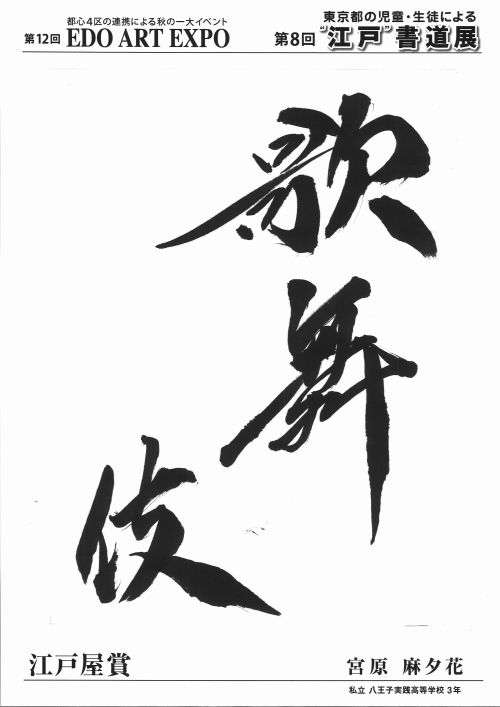 都心4区の連携による秋の一大イベント
第12回 EDO ART EXPO
東京都の児童・生徒による
第8回 "江戸"書道展
歌
舞
伎
江戸屋賞
宮原 麻夕花
私立 八王子実践高等学校 3年